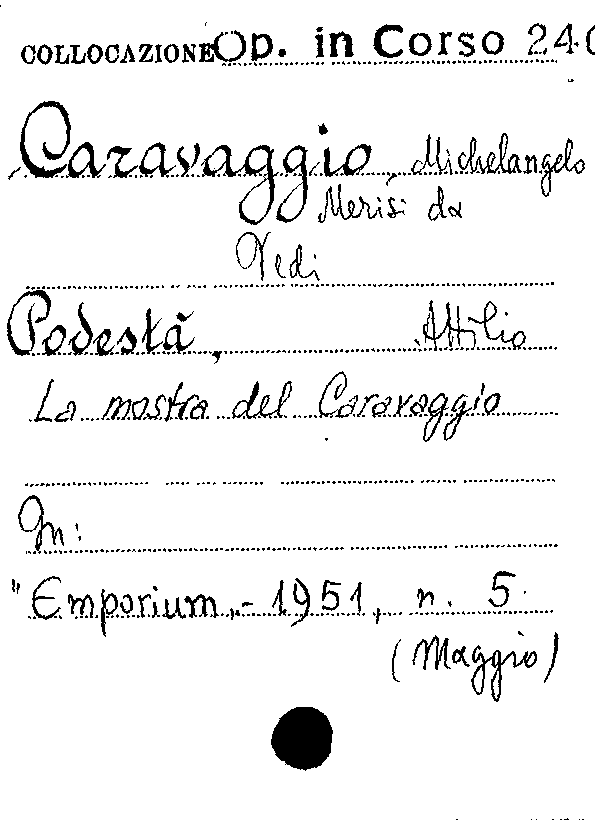 COLLOCAZIONE Op. in Corso 240
Caravaggio, Michelangelo
Merisi da
Vedi
Podestà, Attilio
La mostra del Caravaggio
In:
"Emporium„- 1951, n. 5.
(Maggio)